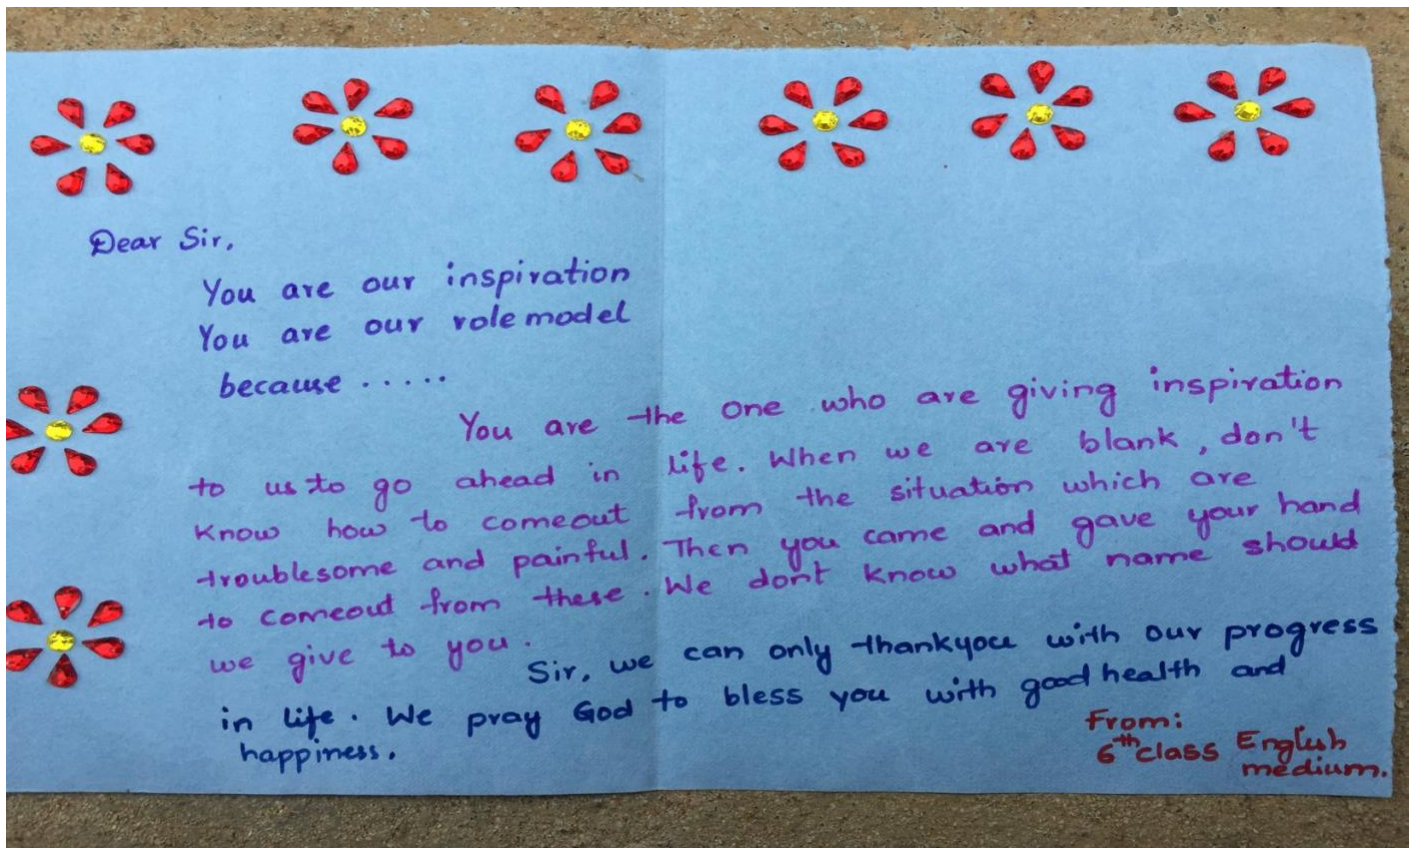 Dear Sir,
You are our inspiration
You are our role model
because .....
You are the one who are giving inspiration
to us to go ahead in life. When we are blank, don't
know how to comeout from the situation which are
troublesome and painful. Then you came and gave your hand
to comeout from these. We dont know what name should
we give to you.
Sir, we can only thankyou with our progress
in life. We pray God to bless you with good health and
happiness.
From:
6th class English
medium.